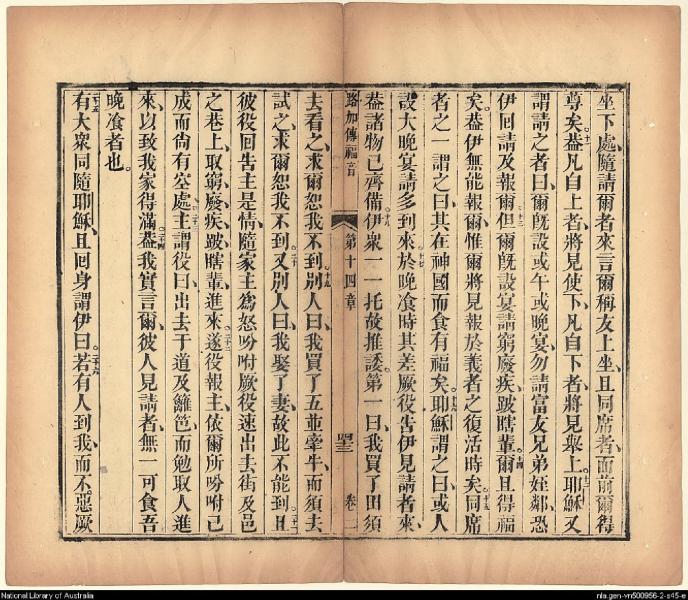 坐下處、隨請爾者來言爾稱友上坐、且同席者而前爾得
尊矣。十一蓋凡自上者、將見使下、凡自下者、將見舉上。十二耶穌又
謂請之者曰、爾既設或午或晚宴、勿請富友兄弟姪鄰、恐
伊回請及報爾。十三但爾既設宴、請窮、廢疾、跛瞎輩、十四爾且得福
矣。蓋伊無能報爾、惟爾將見報於義者之復活時矣。十五同席
者之一謂之曰、其在神國而食有福矣。十六耶穌謂之曰、或人
設大晚宴、請多到來、十七於晚飡時其差厥役告伊見請者來、
蓋諸物已齊備。十八伊衆一一托故推諉。第一曰、我買了田須
路加傳福音
第十四章
卷二
去看之、求爾恕我不到。十九別人曰、我買了五並牽牛、而須去
試之、求爾恕我不到。二十又別人曰、我娶了妻、故此不能到。二一且
彼役回告主是情、隨家主爲怒吩咐厥役速出去街及邑
之巷上、取窮、廢疾、跛瞎輩、進來。二二遂役報主、依爾所吩咐已
成、而尙有空處。二三主謂役曰、出去于道及籬笆、而勉取人進
來、以致我家得滿。二四蓋我實言爾、彼人見請者、無一可食吾
晚飡者也。
二五有大衆同隨耶穌、且回身謂伊曰、二六若有人到我、而不惡厥
National Library of Australia
nla.gen-vn500956-2-s45-e